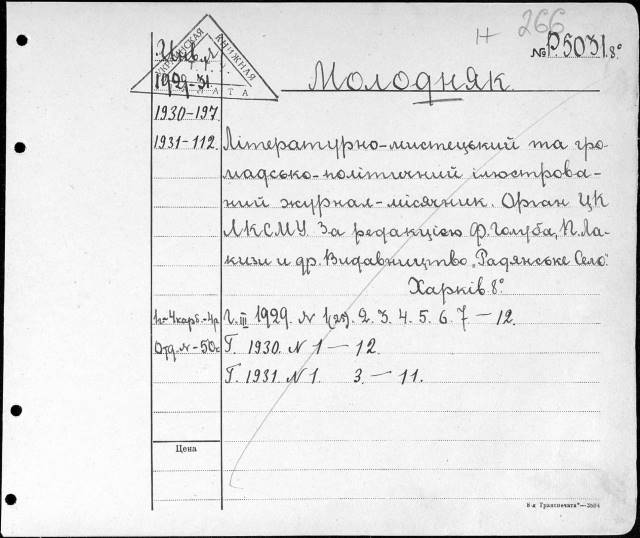 Н 266
№ Р.5031. 8°
УКРАИНСКАЯ КНИЖНАЯ ПАЛАТА
1929-31
Молодняк
1930-197
1931-112.
Літературно-мистецький та гро-
мадсько-політичний ілюстрова-
ний журнал-місячник. Орган ЦК
ЛКСМУ. За редакцією Ф. Голуба, П. Ла-
кизи и др. Видавництво „Радянське Село".
Харків 8°.
4 карб.
Г. III 1929. N 1(25). 2. 3. 4. 5. 6. 7 — 12.
Отд. N - 50к
Г. 1930. N 1 — 12.
Г. 1931. N 1. 3. — 11.
Цена
8-я Транспечать"—3584